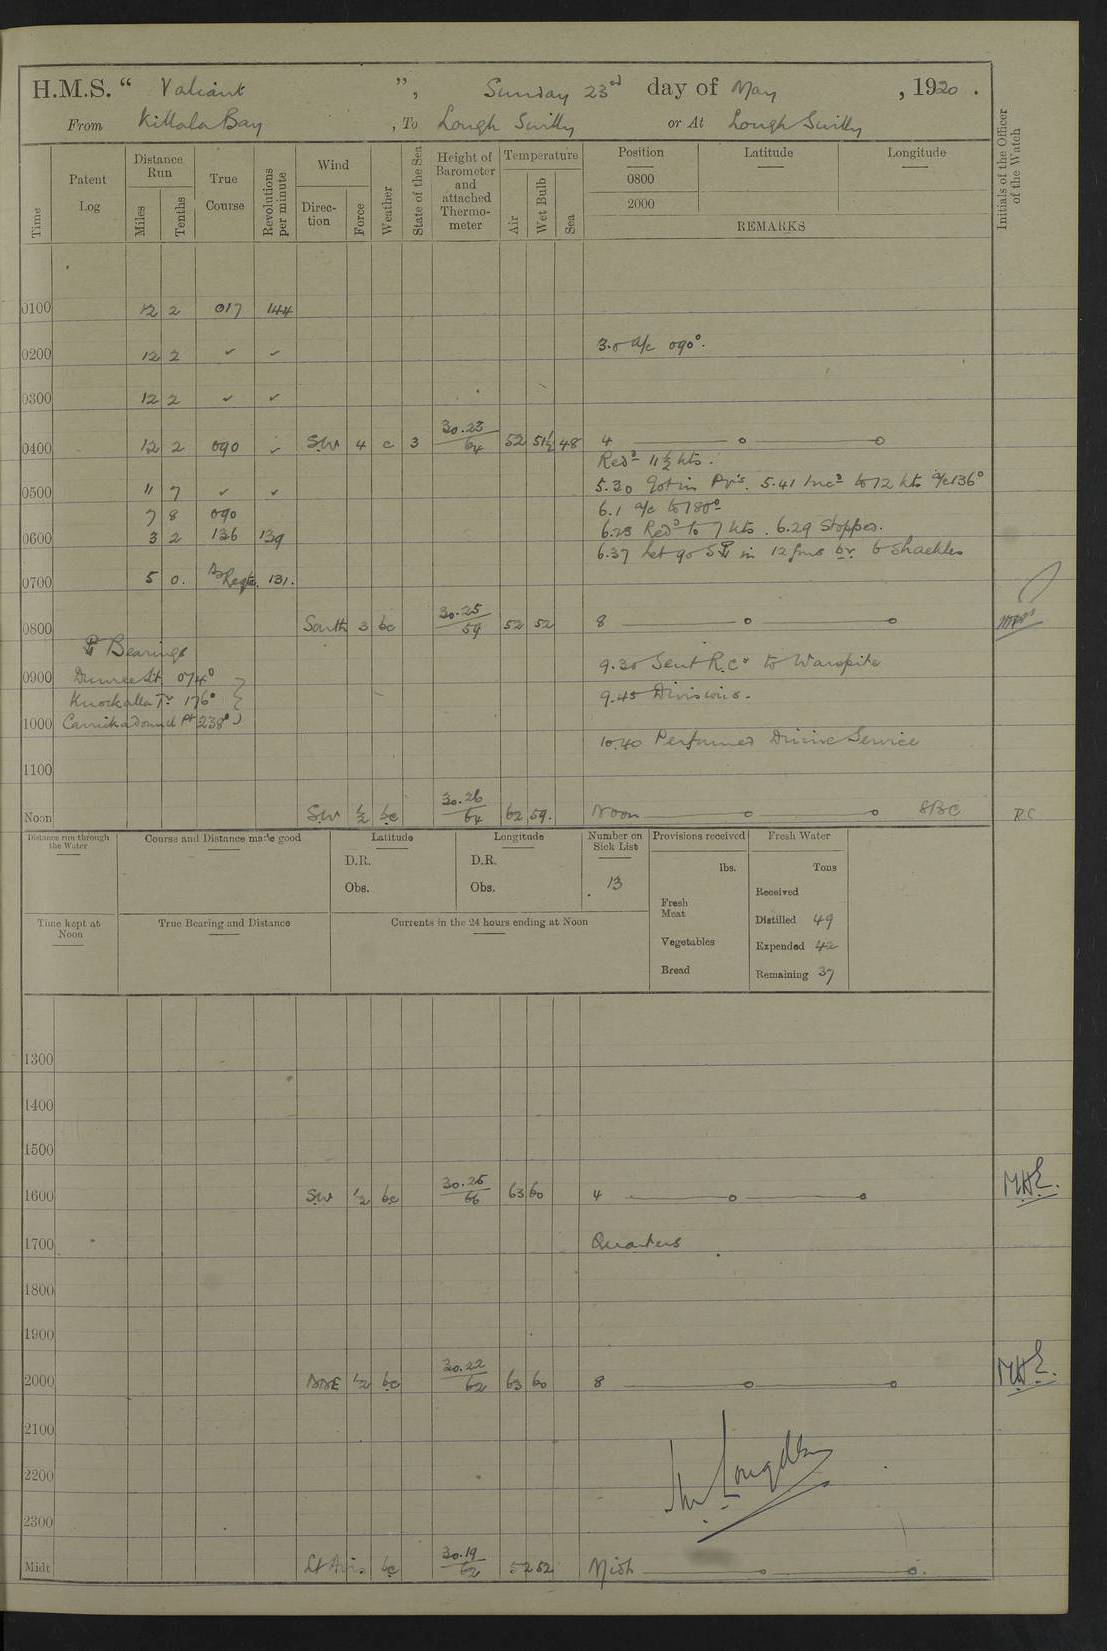 H.M.S. “ Valiant ”, Sunday 23rd day of May , 1920 .
From Killala Bay , To Lough Swilly or At Lough Swilly
Time
Patent Log
Distance Run
Miles
Tenths
True Course
Revolutions per minute
Wind
Direction
Force
Weather
State of the Sea
Height of Barometer and attached Thermometer
Temperature
Air
Wet Bulb
Sea
Position Latitude Longitude
0800
2000
REMARKS
Initials of the Officer of the Watch
0100 12 2 017 144
0200 12 2 ✓ ✓ 3.0 a/c 090°.
0300 12 2 ✓ ✓
0400 12 2 090 ✓ SW 4 c 3 30.23/64 52 51½ 48 4
Redd 11½ kts.
0500 11 7 ✓ ✓ 5.30 Got in PVs. 5.41 Incd to 12 kts a/c 136°
7 8 090 6.1 a/c to 180°
0600 3 2 136 139 6.23 Redd to 7 kts. 6.29 Stopped.
6.37 Let go S in 12 fms br 6 shackles
0700 5 0. As Reqte. 131.
0800 South 3 bc 30.25/59 52 52 8
Bearings
0900 Dunree Lt 074° 9.30 Sent R.C.s to Warspite
Knockalla Tr 176° 9.45 Divisions.
1000 Carrickadound Pt 238°
10.40 Performed Divine Service
1100
Noon SW ½ bc 30.26/64 62 59. Noon SBC R.C
Distance run through the Water
Course and Distance made good
Latitude
D.R.
Obs.
Longitude
D.R.
Obs.
Number on Sick List
13
Provisions received
lbs.
Fresh Meat
Vegetables
Bread
Fresh Water
Tons
Received
Distilled 49
Expended 42
Remaining 37
Time kept at Noon
True Bearing and Distance
Currents in the 24 hours ending at Noon
1300
1400
1500
1600 SW ½ bc 30.25/66 63 60 4 MHE.
1700 Quarters
1800
1900
2000 NNE ½ bc 30.22/62 63 60 8 MHE.
2100
2200
2300
Midt Lt Air. bc 30.19/62 52 52 Midt